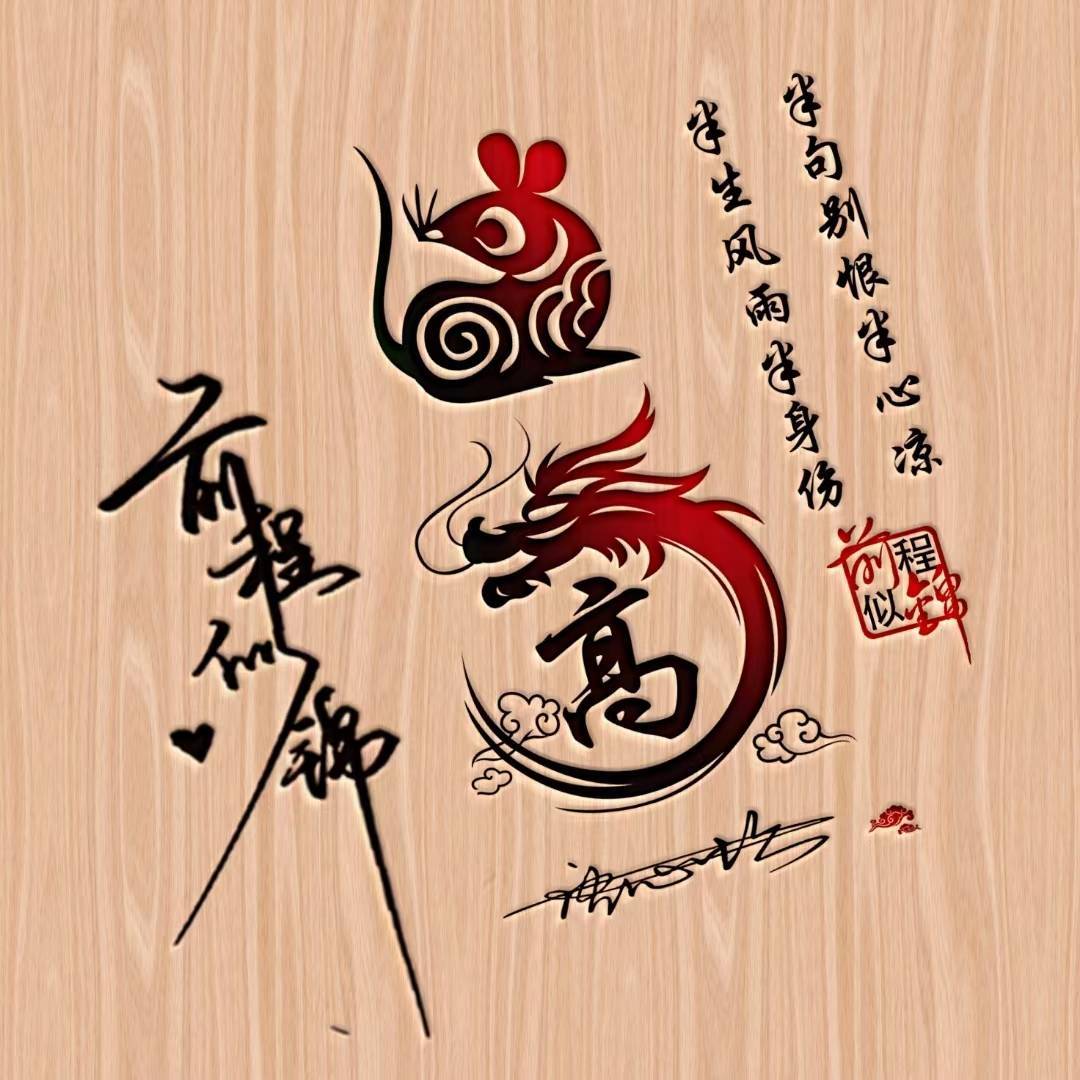 半句别恨半心凉
半生风雨半身伤
前程似锦
高
前程
似锦